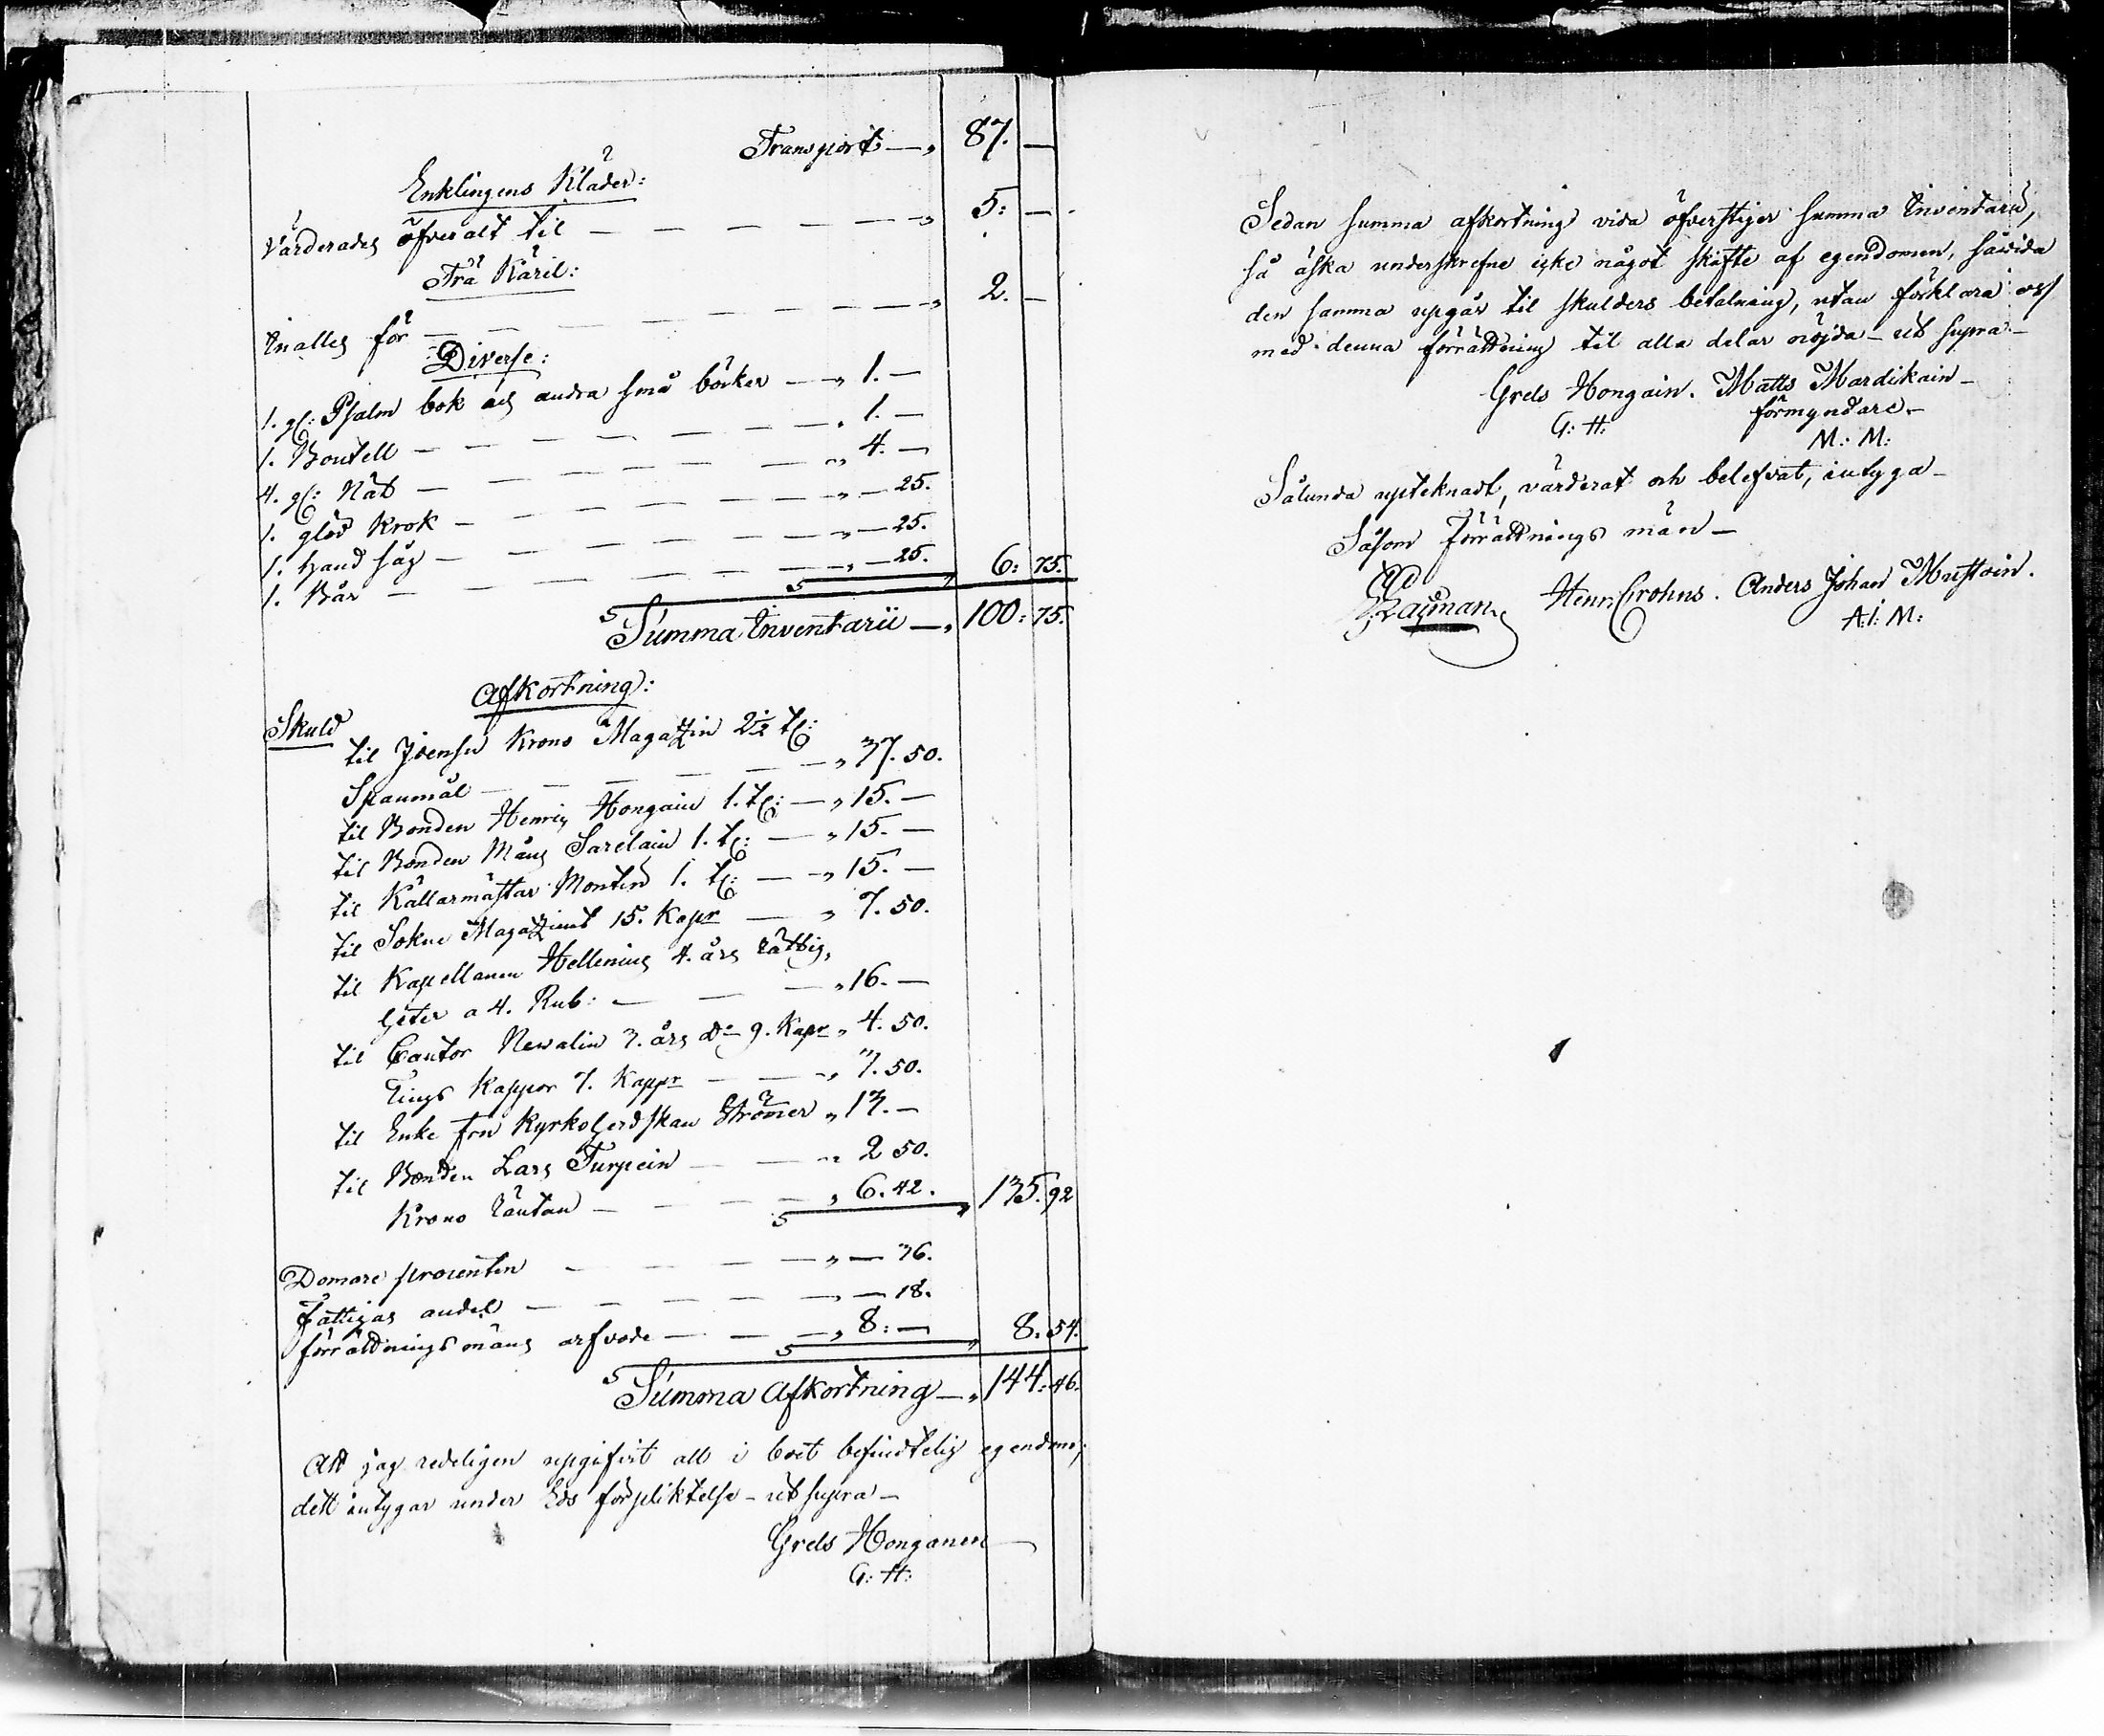 Transport — „ 87. —
Enklingens Kläder:
Värderades öfveralt til — — — — — „ 5: —
Trä Käril:
Inalles för — — — — — — „ 2. —
Diverse:
1. gl: Psalm bok och andra små böcker — „ 1. —
1. Boutell — — — — — „ 1. —
4. gl: Nät — — — — — „ 4. —
1. glöd Krok — — — — — „ — 25.
1. hand såg — — — — — „ — 25.
1. Bår — — — — — „ — 25. 6: 75.
Summa Inventarii — „ 100: 75.
Afkortning:
Skuld
til Joensu Krono Magatzin 2½ t:
Spanmål — — — — „ 37. 50.
til Bonden Henric Hongain 1. t: — „ 15. —
til Bonden Måns Sarelain 1. t: — „ 15. —
til Källarmästar Montin 1. t: — „ 15. —
til Sokne Magatzinet 15. Kapr — „ 7. 50.
til Kapellanen Hellenius 4. års rättig,
heter a 4. Rub: — — — „ 16. —
til Cantor Newalin 3. års do 9. Kapr „ 4. 50.
Tings Kappor 7. Kappr — — „ 3. 50.
til Enke fru Kyrkoherdskan Strömer „ 13. —
til Bonden Lars Turpein — — „ 2 50.
Krono räntan — — — „ 6. 42. 135. 92
Domare procenten — — — — „ — 36.
Fattigas andel — — — — „ — 18.
förrättningsmäns arfvode — — „ 8: — 8. 54.
Summa Afkortning — „ 144: 46.
Att jag redeligen upgifvit alt i boet befindtelig egendom,
dett intygar under Eds förpliktelse — ut supra —
Grels Honganen
G: H:
Sedan summa afkortning vida öfverstiger summa Inventarii,
så äska underskrefne icke något skifte af egendomen, såvida
den samma upgår til skulders betalning, utan förklara oss
med denna förrättning til alla delar nöjda — ut supra —
Grels Hongain. Matts Mardikain —
förmyndare —
G: H: M: M:
Sålunda upteknadt, värderat och belefvat, intyga —
Såsom Förrättnings män —
Henr Crohns. Anders Johan Mustoin.
A: I: M: